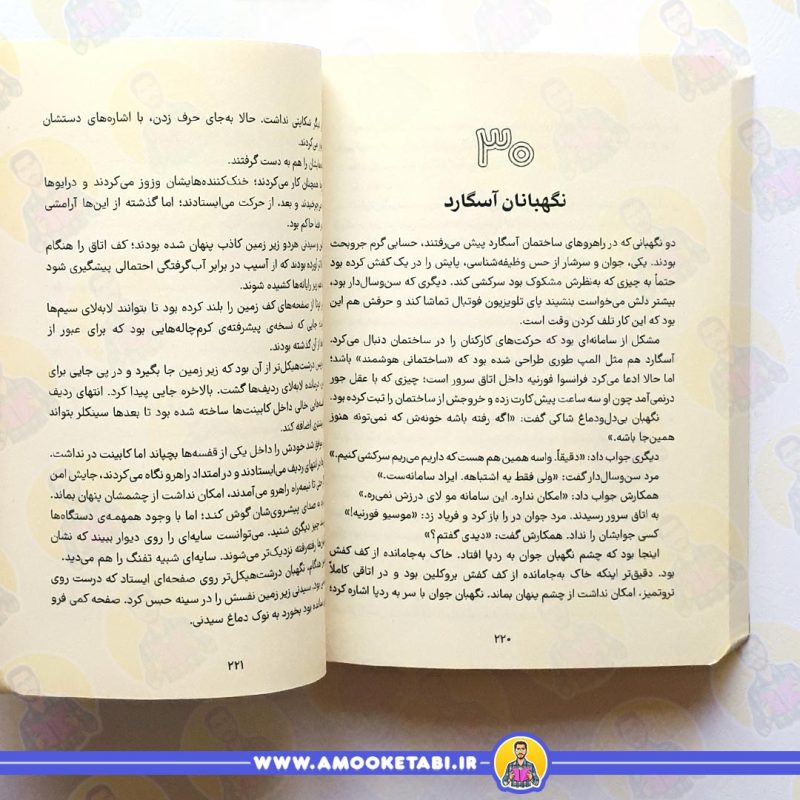 ۳۰
نگهبانان آسگارد
دو نگهبانی که در راهروهای ساختمان آسگارد پیش می‌رفتند، حسابی گرم جروبحث
بودند. یکی، جوان و سرشار از حس وظیفه‌شناسی، پایش را در یک کفش کرده بود
حتماً به جیزی که به‌نظرش مشکوک بود سرکشی کند. دیگری که سن‌وسال‌دار بود،
بیشتر دلش می‌خواست بنشیند پای تلویزیون فوتبال تماشا کند و حرفش هم این
بود که این کار تلف کردن وقت است.
مشکل از سامانه‌ای بود که حرکت‌های کارکنان را در ساختمان دنبال می‌کرد.
آسگارد هم مثل المپ طوری طراحی شده بود که «ساختمانی هوشمند» باشد؛
اما حالا ادعا می‌کرد فرانسوا فورنیه داخل اتاق سرور است؛ چیزی که با عقل جور
درنمی‌آمد چون او سه ساعت پیش کارت زده و خروجش از ساختمان را ثبت کرده بود.
نگهبان بی‌دل‌ودماغ شاکی گفت: «اگه رفته باشه خونه‌ش که نمی‌تونه هنوز
همین‌جا باشه.»
دیگری جواب داد: «دقیقاً. واسه همین هم هست که داریم می‌ریم سرکشی کنیم.»
مرد سن‌وسال‌دار گفت: «ولی فقط یه اشتباهه. ایراد سامانه‌ست.»
همکارش جواب داد: «امکان نداره. این سامانه مو لای درزش نمی‌ره.»
به اتاق سرور رسیدند. مرد جوان در را باز کرد و فریاد زد: «موسیو فورنیه!»
کسی جوابشان را نداد. همکارش گفت: «دیدی گفتم؟»
اینجا بود که چشم نگهبان جوان به ردپا افتاد. خاک به‌جامانده از کف کفش
بود. دقیق‌تر اینکه خاک به‌جامانده از کف کفش بروکلین بود و در اتاقی کاملاً
تروتمیز، امکان نداشت از چشم پنهان بماند. نگهبان جوان با سر به ردپا اشاره کرد؛
۲۲۰
دیگر شکایتی نداشت. حالا به‌جای حرف زدن، با اشاره‌های دستشان
می‌کردند.
هایشان را هم به دست گرفتند.
همچنان کار می‌کردند؛ خنک‌کننده‌هایشان وزوز می‌کردند و درایوها
می‌چرخیدند و بعد، از حرکت می‌ایستادند؛ اما گذشته از این‌ها آرامشی
حاکم بود.
و سیدنی هردو زیر زمین کاذب پنهان شده بودند؛ کف اتاق را هنگام
بودند که از آسیب در برابر آب‌گرفتگی احتمالی پیشگیری شود
زیر رایانه‌ها کشیده شوند.
از صفحه‌های کف زمین را بلند کرده بود تا بتوانند لابه‌لای سیم‌ها
جایی که نسخه‌ی پیشرفته‌ی کرم‌چاله‌هایی بود که برای عبور از
آن گذشته بودند.
درشت‌هیکل‌تر از آن بود که زیر زمین جا بگیرد و در پی جایی برای
لابه‌لای ردیف‌ها گشت. بالاخره جایی پیدا کرد. انتهای ردیف
خالی داخل کابینت‌ها ساخته شده بود تا بعدها سینکلر بتواند
اضافه کند.
موفق شد خودش را داخل یکی از قفسه‌ها بچپاند اما کابینت در نداشت.
در انتهای ردیف می‌ایستادند و در امتداد راهرو نگاه می‌کردند، جایش امن
تا نیمه‌راه راهرو می‌آمدند، امکان نداشت از چشمشان پنهان بماند.
به صدای پیشروی‌شان گوش کند؛ اما با وجود همهمه‌ی دستگاه‌ها
چیز دیگری شنید. می‌توانست سایه‌ای را روی دیوار ببیند که نشان
رفته‌رفته نزدیک‌تر می‌شوند. سایه‌ای شبیه تفنگ را هم می‌دید.
نگهبان درشت‌هیکل‌تر روی صفحه‌ای ایستاد که درست روی
بود. سیدنی زیر زمین نفسش را در سینه حبس کرد. صفحه کمی فرو
مانده بود بخورد به نوک دماغ سیدنی.
۲۲۱
WWW.AMOOKETABI.IR